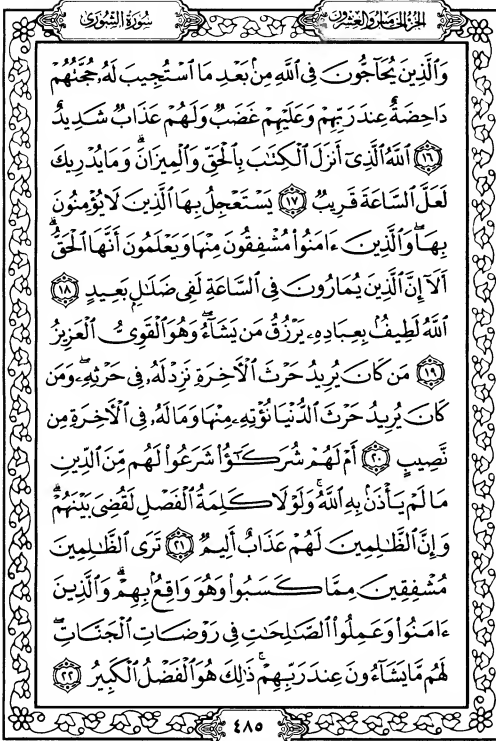 سُورَةُ الشُّورَىٰ
الجُزْءُ الخَامِسُ وَالعِشْرُونَ
وَالَّذِينَ يُحَاجُّونَ فِي اللَّهِ مِنْ بَعْدِ مَا اسْتُجِيبَ لَهُ حُجَّتُهُمْ
دَاحِضَةٌ عِندَ رَبِّهِمْ وَعَلَيْهِمْ غَضَبٌ وَلَهُمْ عَذَابٌ شَدِيدٌ
١٦ اللَّهُ الَّذِي أَنزَلَ الْكِتَٰبَ بِالْحَقِّ وَالْمِيزَانَ ۗ وَمَا يُدْرِيكَ
لَعَلَّ السَّاعَةَ قَرِيبٌ ١٧ يَسْتَعْجِلُ بِهَا الَّذِينَ لَا يُؤْمِنُونَ
بِهَا ۖ وَالَّذِينَ ءَامَنُوا مُشْفِقُونَ مِنْهَا وَيَعْلَمُونَ أَنَّهَا الْحَقُّ ۗ
أَلَا إِنَّ الَّذِينَ يُمَارُونَ فِي السَّاعَةِ لَفِي ضَلَٰلٍ بَعِيدٍ ١٨
اللَّهُ لَطِيفٌ بِعِبَادِهِ يَرْزُقُ مَن يَشَآءُ ۖ وَهُوَ الْقَوِيُّ الْعَزِيزُ
١٩ مَن كَانَ يُرِيدُ حَرْثَ الْآخِرَةِ نَزِدْ لَهُ فِي حَرْثِهِ ۖ وَمَن
كَانَ يُرِيدُ حَرْثَ الدُّنْيَا نُؤْتِهِ مِنْهَا وَمَا لَهُ فِي الْآخِرَةِ مِن
نَّصِيبٍ ٢٠ أَمْ لَهُمْ شُرَكَٰٓؤُا شَرَعُوا لَهُم مِّنَ الدِّينِ
مَا لَمْ يَأْذَن بِهِ اللَّهُ ۚ وَلَوْلَا كَلِمَةُ الْفَصْلِ لَقُضِيَ بَيْنَهُمْ ۗ
وَإِنَّ الظَّٰلِمِينَ لَهُمْ عَذَابٌ أَلِيمٌ ٢١ تَرَى الظَّٰلِمِينَ
مُشْفِقِينَ مِمَّا كَسَبُوا وَهُوَ وَاقِعٌ بِهِمْ ۗ وَالَّذِينَ
ءَامَنُوا وَعَمِلُوا الصَّٰلِحَاتِ فِي رَوْضَاتِ الْجَنَّاتِ ۖ
لَهُم مَّا يَشَآءُونَ عِندَ رَبِّهِمْ ۚ ذَٰلِكَ هُوَ الْفَضْلُ الْكَبِيرُ ٢٢
٤٨٥